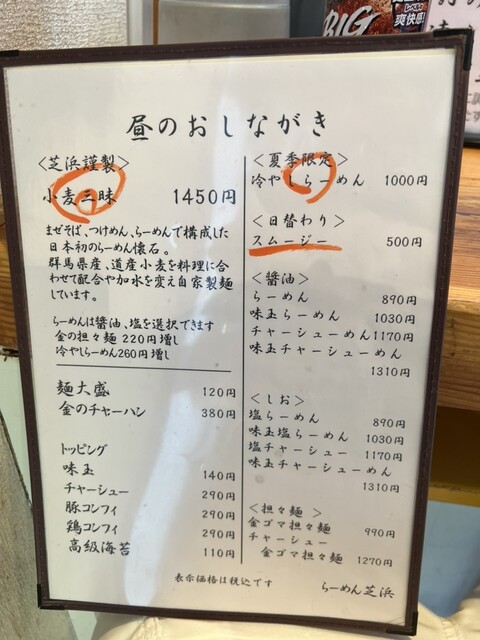 BIG
爽快感!
昼のおしながき
<芝浜謹製>
小麦三昧 1450円
まぜそば、つけめん、らーめんで構成した
日本初のらーめん懐石。
群馬県産、道産小麦を料理に合
わせて配合や加水を変え自家製麺
しています。
らーめんは醤油、塩を選択できます
金の担々麺 220円増し
冷やしらーめん260円増し
麺大盛 120円
金のチャーハン 380円
トッピング
味玉 140円
チャーシュー 290円
豚コンフィ 290円
鶏コンフィ 290円
高級海苔 110円
<夏季限定>
冷やしらーめん 1000円
<日替わり>
スムージー 500円
<醤油>
らーめん 890円
味玉らーめん 1030円
チャーシューめん1170円
味玉チャーシューめん
1310円
<しお>
塩らーめん 890円
味玉塩らーめん 1030円
塩チャーシュー 1170円
味玉チャーシューめん
1310円
<担々麺>
金ゴマ担々麺 990円
チャーシュー
金ゴマ担々麺 1270円
表示価格は税込です
らーめん芝浜